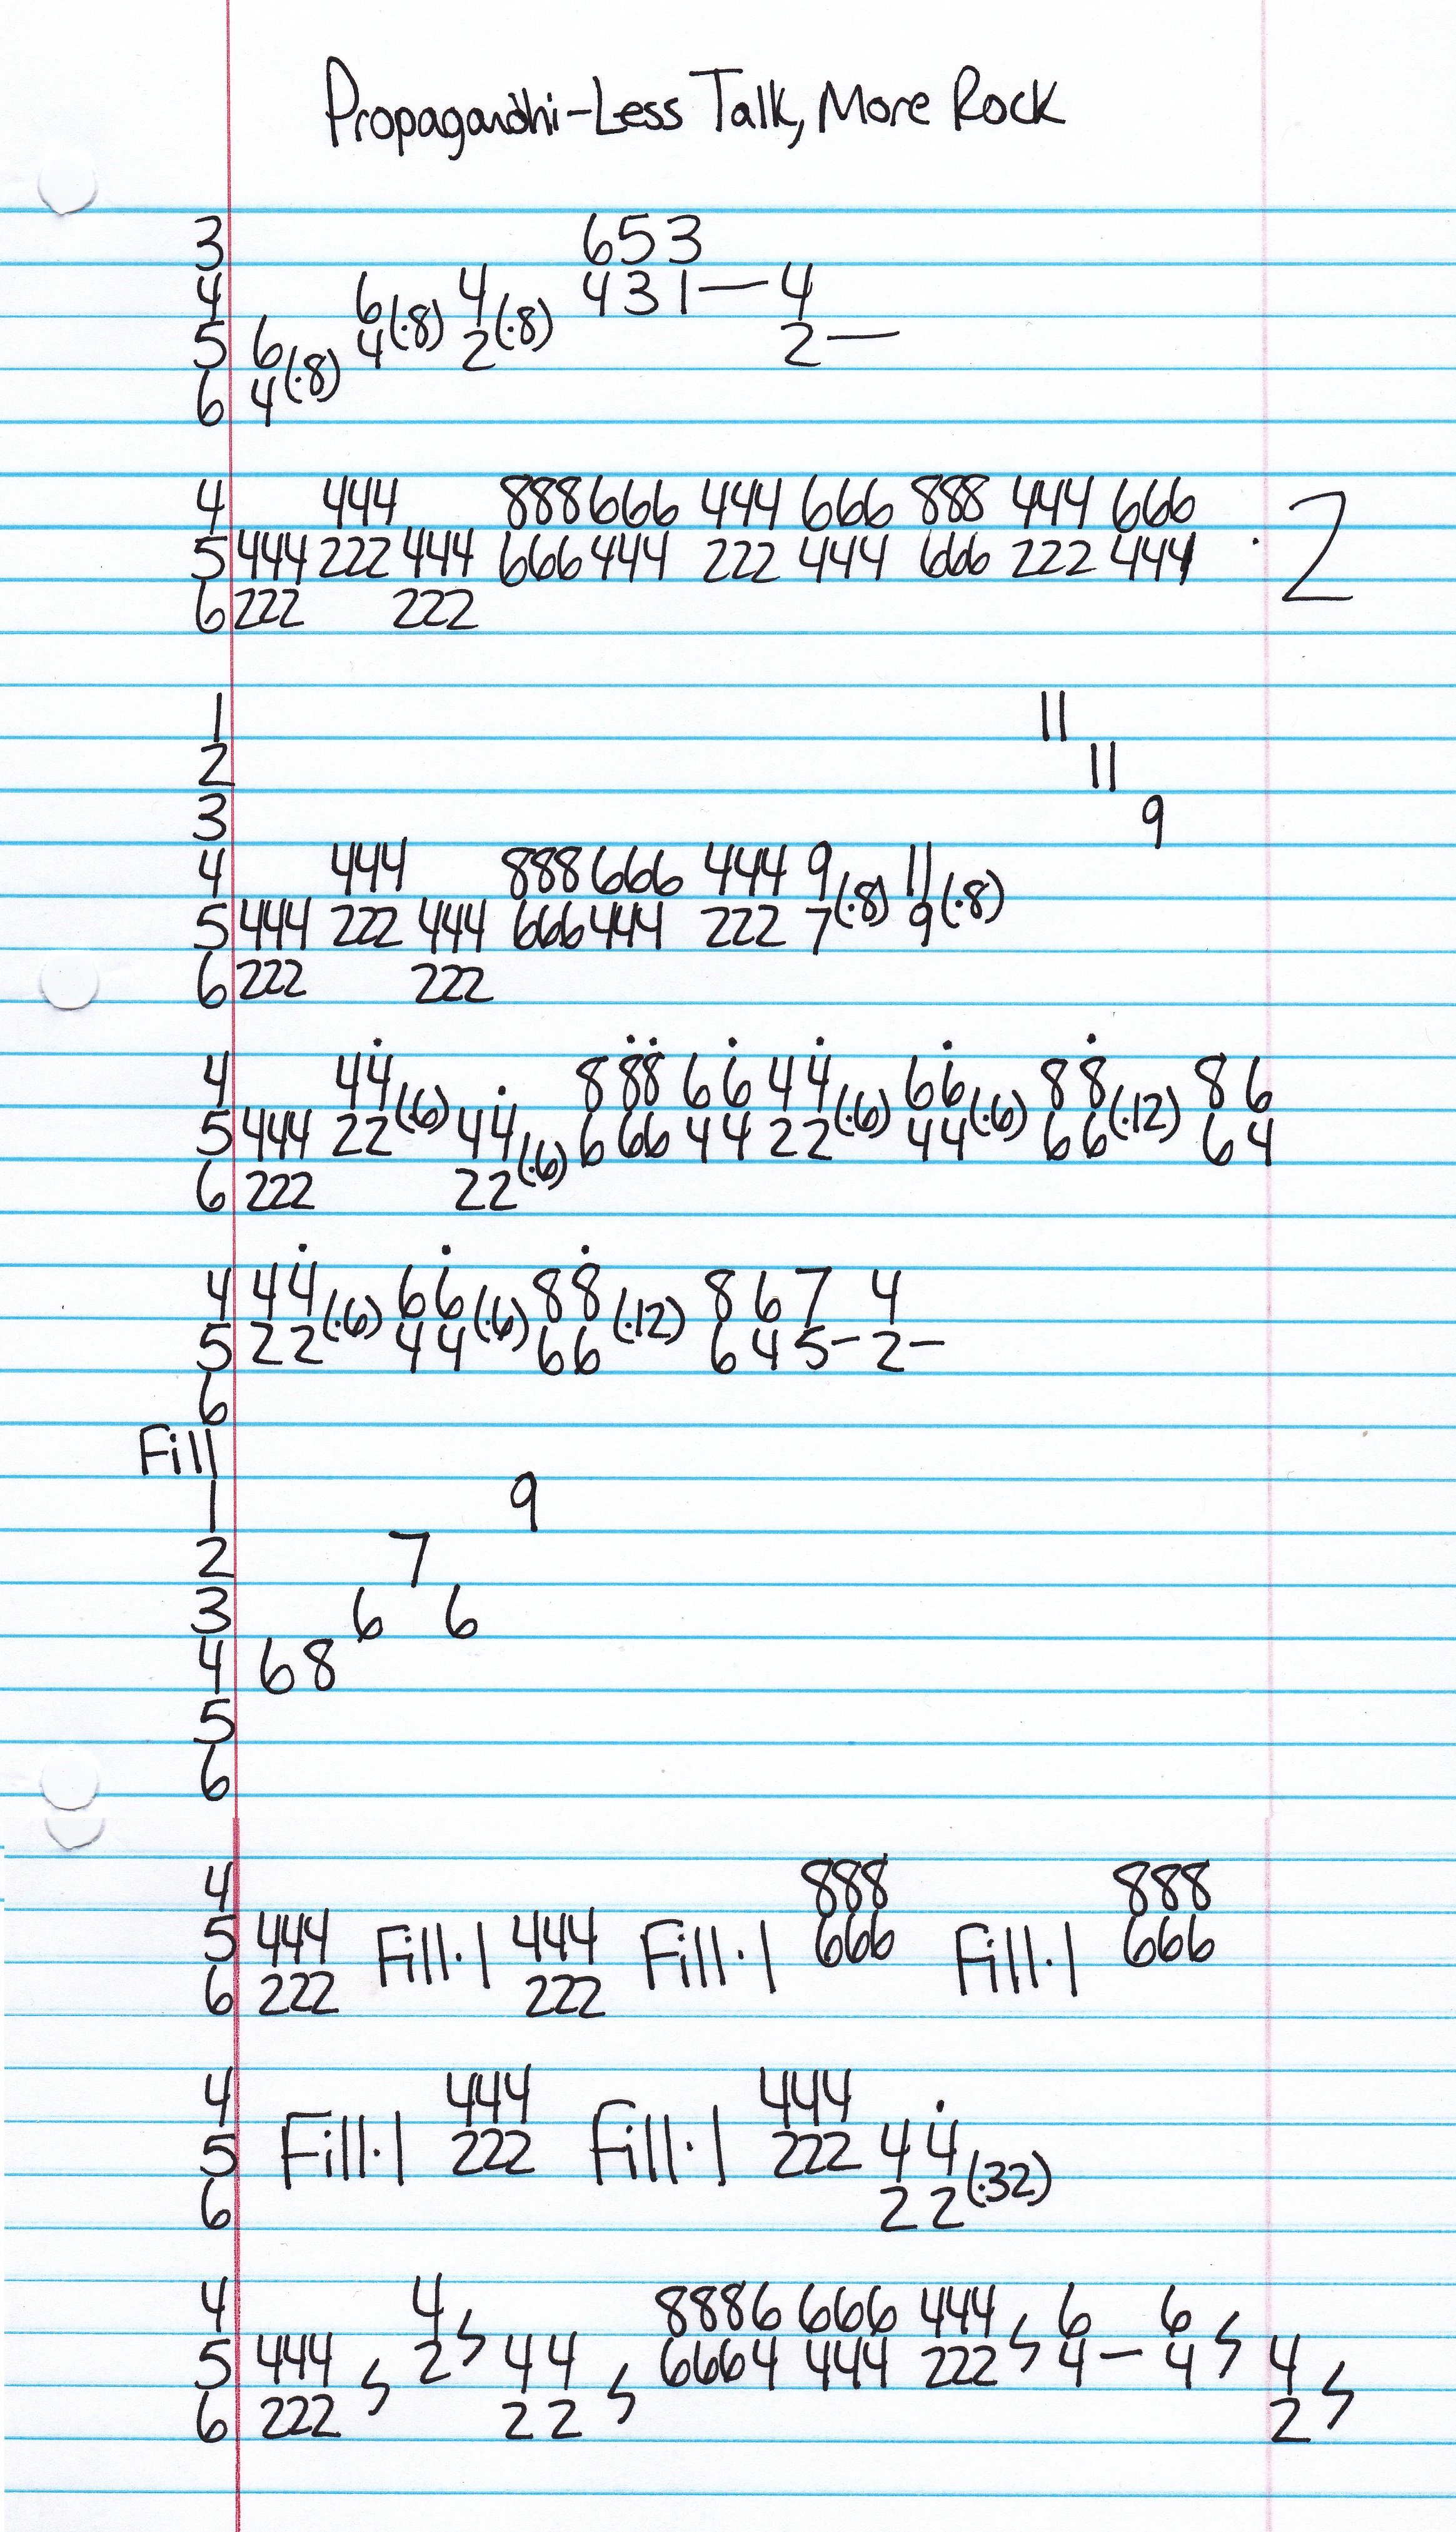 Propagandhi-Less Talk, More Rock
3 653
4 6(·8) 4(·8) 431— 4
5 6(·8) 4 2 2—
6 4
4 444 888 666 444 666 888 444 666
5 444 222 444 666 444 222 444 666 222 444 ·2
6 222 222
1 11
2 11
3 9
4 444 888 666 444 9(·8) 11(·8)
5 444 222 444 666 444 222 7 9
6 222 222
4 44̇(·6) 8 8̇8̇ 66̇ 44̇(·6) 66̇(·6) 88̇(·12) 8 6
5 444 22 44̇(·6) 6 66 44 22 44 66 6 4
6 222 22
4 44̇(·6) 66̇(·6) 88̇(·12) 8 6 7 4
5 22 44 66 6 4 5— 2—
6
Fill
1 9
2 7
3 6 6
4 68
5
6
4 888 888
5 444 Fill·1 444 Fill·1 666 Fill·1 666
6 222 222
4 444 444
5 Fill·1 222 Fill·1 222 44̇(·32)
6 22
4 4 8886 666 444 6 6
5 444 2 44 6664 444 222 4— 4 4
6 222 22 2